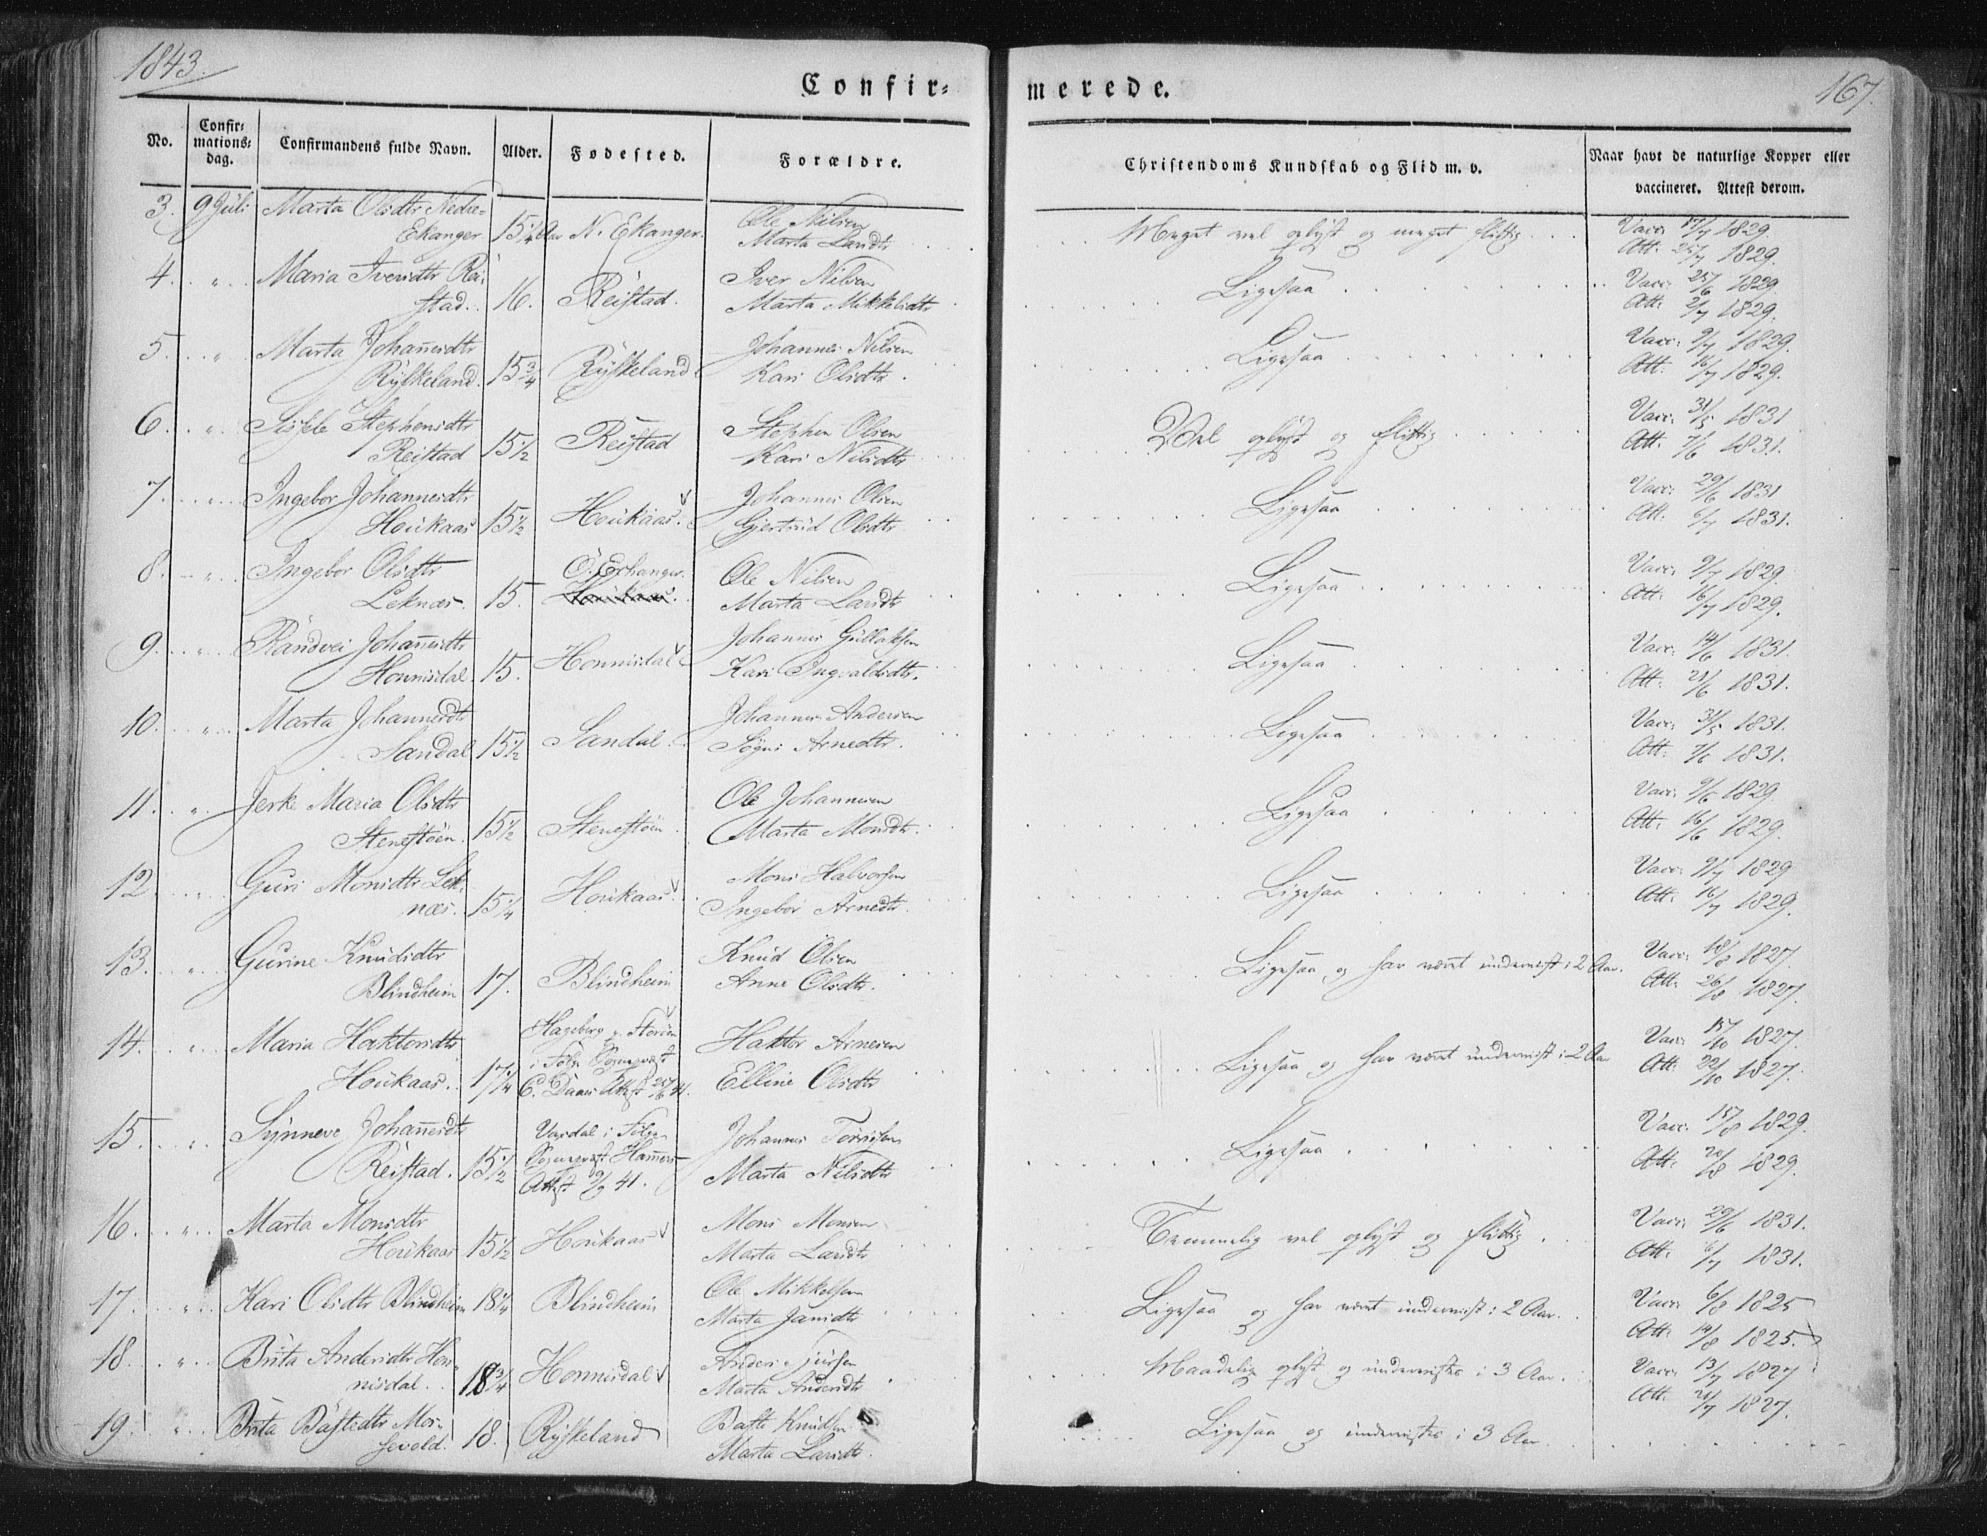 1843.
167.
Confir=
merede.
No.
Confir=
mations=
dag.
Confirmandens fulde Navn.
Alder.
Fødested.
Forældre.
Christendoms Kundskab og Flid m. v.
Naar havt de naturlige Kopper eller
vaccineret. Attest derom.
3. 9 Juli Marta Olsdtr Nedre- Ole Nilsen Meget vel oplyst og meget flittig Vacc: 17/7 1829.
Ekanger 15 1/4 Aar N. Ekanger. Marta Larsdtr Att: 25/7 1829.
4 " Maria Iversdtr Rei- Iver Nilsen Ligesaa Vacc: 25/6 1829
stad. 16. Reistad. Marta Mikkelsdtr Att: 2/7 1829.
5. " Marta Johañesdtr Johannes Nilsen Ligesaa Vacc: 9/7 1829.
Ryskeland. 15 3/4 Ryskeland Kari Olsdtr. Att. 16/7 1829.
6 " Stephensdtr Stephen Olsen Vel oplyst og flittig Vacc: 31/5 1831
Reistad 15 1/2 Reistad Kari Nilsdtr Att. 7/6 1831.
7. " Ingebor Johannesdtr Johannes Olsen Ligesaa Vacc: 29/6 1831
Houkaas 15 1/2 Houkaas. Gjertrud Olsdtr Att. 6/7 1831.
8. " Ingebor Olsdtr Ø. Ekanger. Ole Nilsen Ligesaa Vacc: 9/7 1829.
Leknæs. 15. Marta Larsdtr Att: 16/7 1829.
9. " Randvei Johañesdtr Johannes Gullaksen Ligesaa Vacc: 14/6 1831.
Honnisdal 15. Honnisdal Kari Ingvaldsdtr. Att: 21/6 1831.
10. " Marta Johannesdtr Johannes Andersen Ligesaa Vacc: 31/5 1831.
Sandal 15 1/2 Sandal. Sogni Arnedtr. Att. 7/6 1831.
11. " Jerke Maria Olsdtr Ole Johannesen Ligesaa Vacc: 9/6 1829.
Stenstöen. 15 1/2 Stenestöen Marta Monsdtr. Att: 16/6 1829.
12 " Guri Monsdtr Lek- Mons Halvorsen Ligesaa Vacc: 9/7 1829
næs. 15 1/4 Houkaas Ingebor Arnedtr. Att. 16/7 1829.
13. " Gurine Knudsdtr Knud Olsen Ligesaa og har været underviist i 2 Aar. Vacc: 18/8 1827.
Blindheim 17. Blindheim Anne Olsdtr. Att. 26/8 1827.
14. " Maria Haktorsdtr Hageberg Haktor Arnesen Ligesaa og har været underviist i 2 Aar Vacc: 15/10 1827.
i Følge
Houkaas. 17 1/4 C. Daaes Attest 25/6 41. Elline Olsdtr Att. 22/10 1827.
15. " Synneve Johañesdtr Vardal i Følge Johannes Ligesaa Vacc. 15/8 1829.
Reistad. 15 1/2 Attest 2/9 41. Marta Nilsdtr Att: 20/8 1829.
16. " Marta Monsdtr Mons Monsen Temmelig vel oplyst og flittig. Vacc: 29/6 1831.
Houkaas 15 1/2 Houkaas Marta Larsdtr Att. 6/7 1831.
17. " Kari Olsdtr Blindheim 18 1/4 Blindheim Ole Mikkelsen Ligesaa og har været underviist i 2 Aar. Vacc: 6/8 1825
Marta Jansdtr Att: 14/8 1825.
18. " Brita Andersdtr Hon- Anders Ligesaa
nisdal. 18 3/4 Honnisdal Marta Andersdtr Maadelig oplyst og undervistes i 3 Aar. Vacc: 13/7 1827
Att: 21/7 1827.
19. " Brita Mos- Knudsen Ligesaa og undervistes i 3 Aar
sevold. 18. Ryskeland Marta Larsdtr.